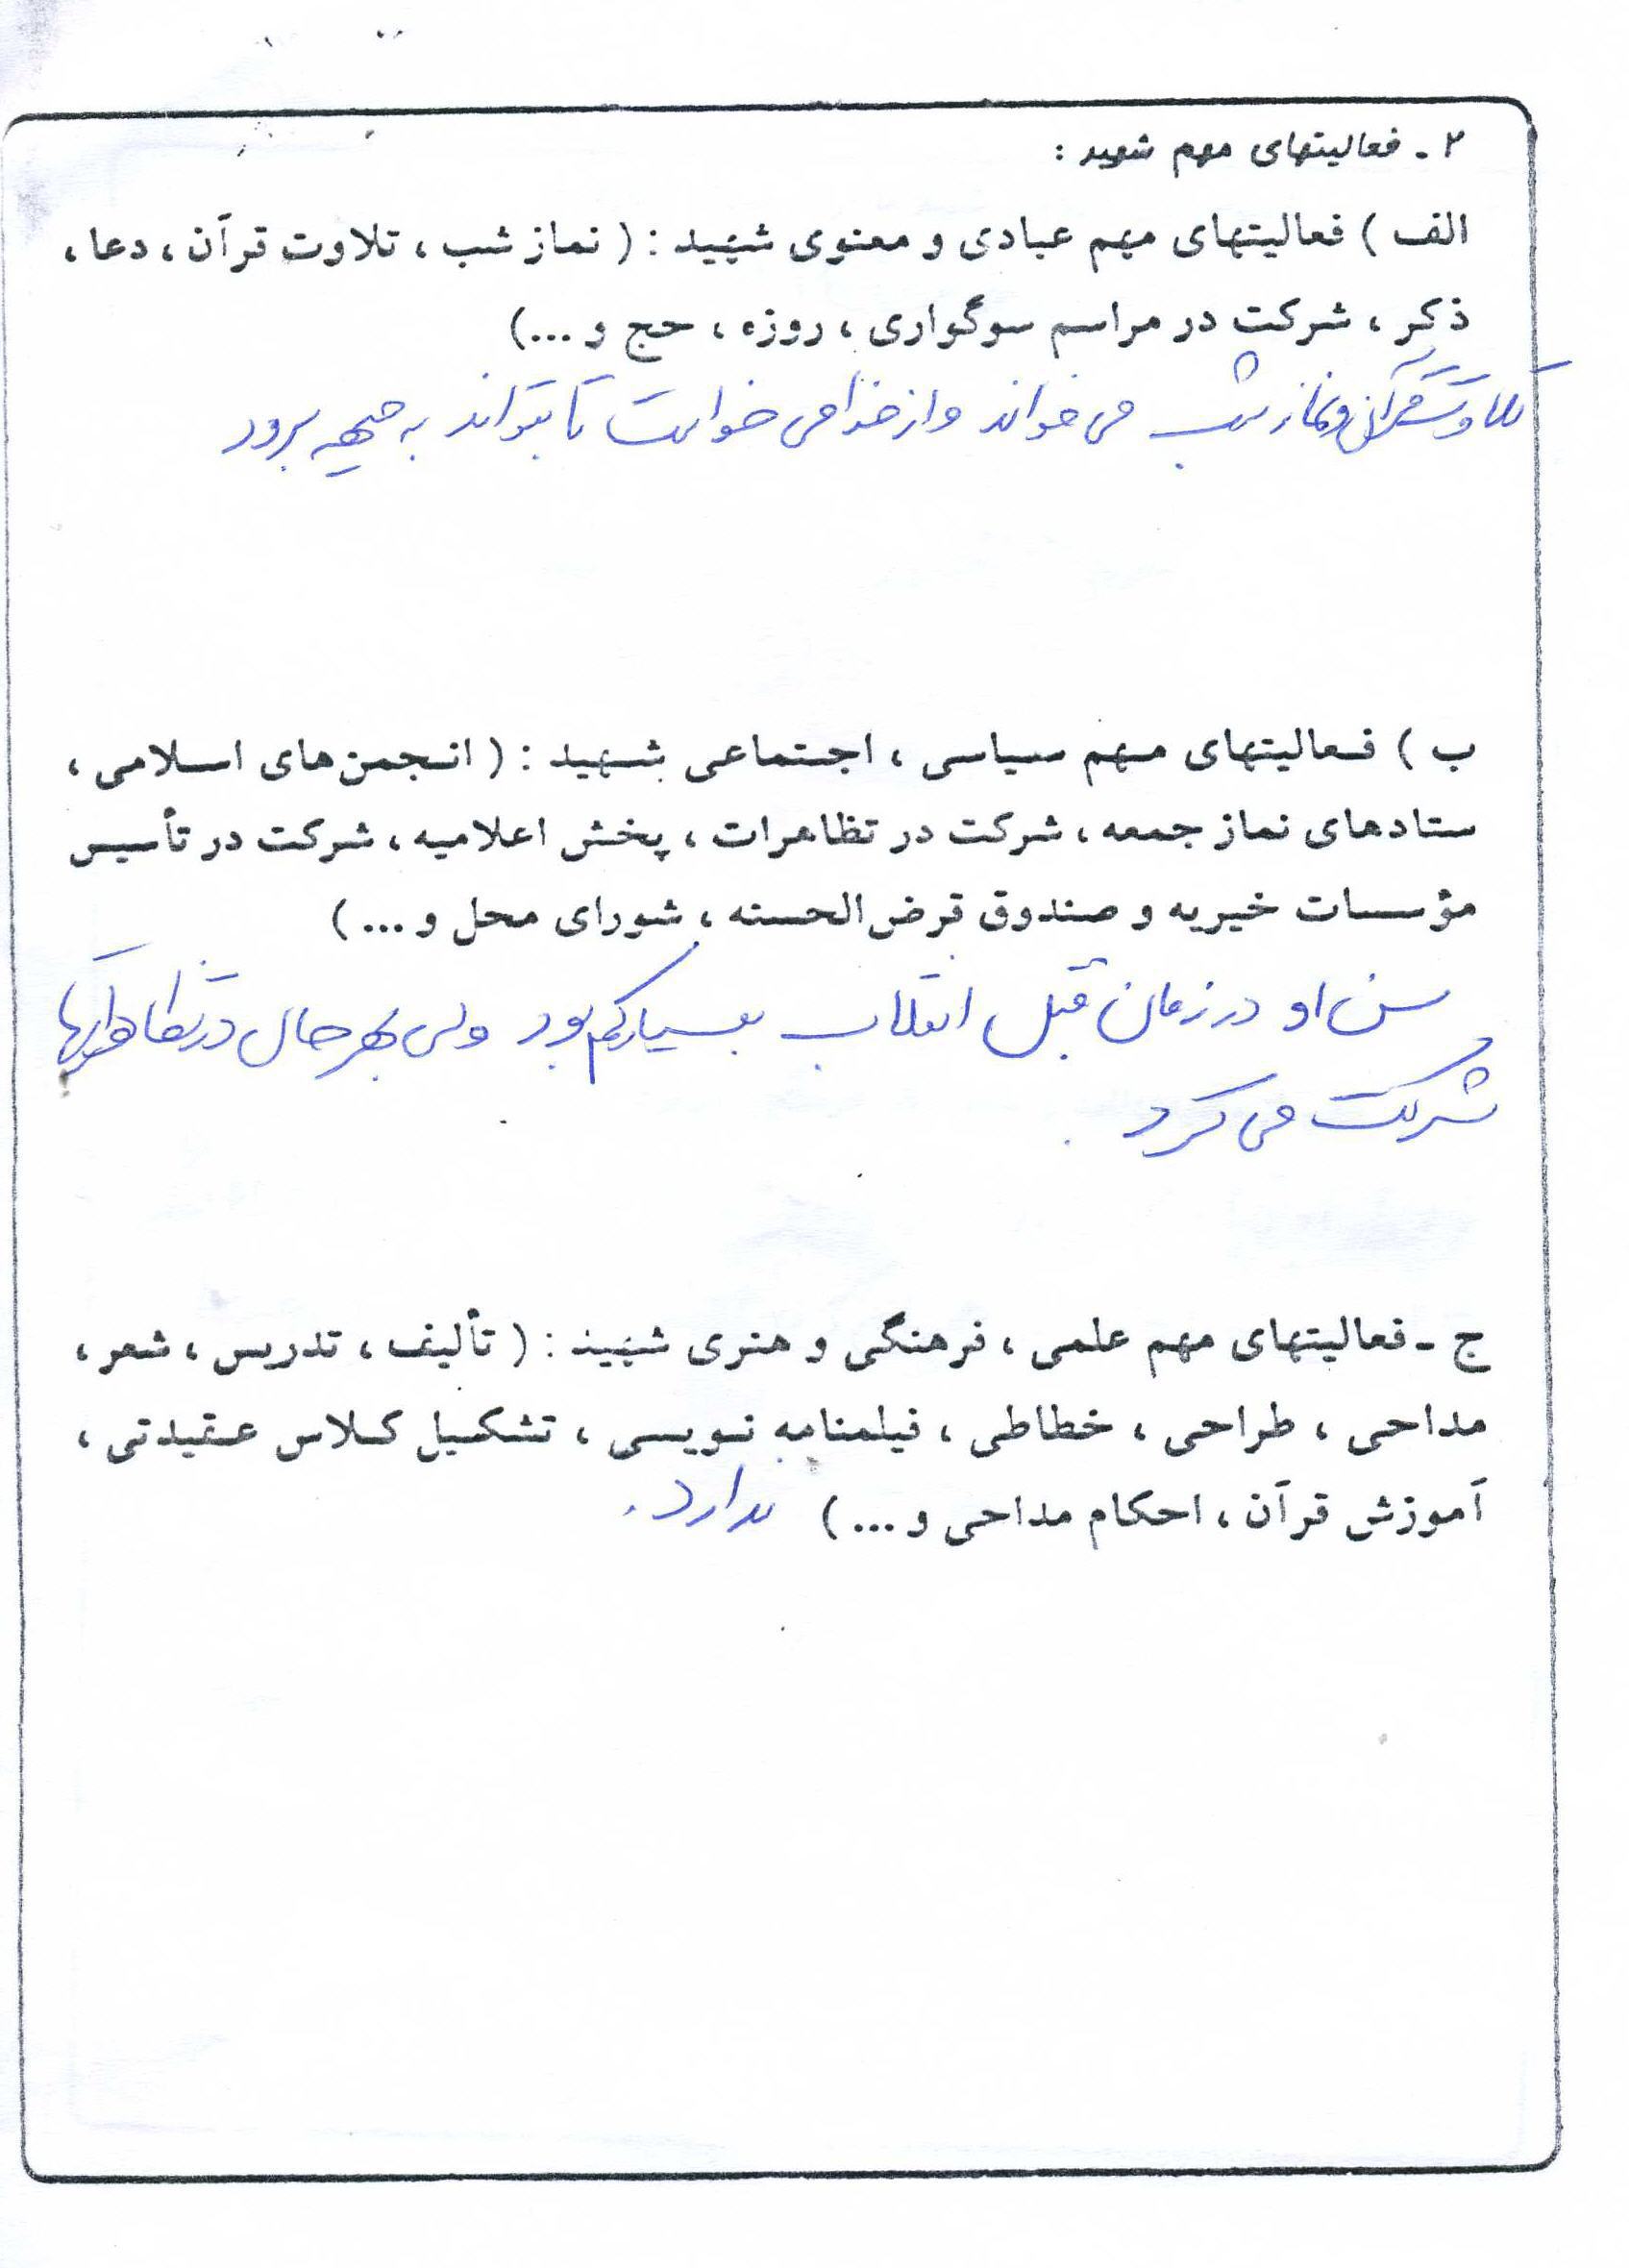 ۲ - فعالیتهای مهم شهید :
الف ) فعالیتهای مهم عبادی و معنوی شهید : ( نماز شب ، تلاوت قرآن ، دعا ،
ذکر ، شرکت در مراسم سوگواری ، روزه ، حج و ...)
تلاوت قرآن و نماز شب می خواند و از خدا می خواست تا بتواند به جبهه برود
ب ) فعالیتهای مهم سیاسی ، اجتماعی شهید : ( انجمن‌های اسلامی ،
ستادهای نماز جمعه ، شرکت در تظاهرات ، پخش اعلامیه ، شرکت در تأسیس
مؤسسات خیریه و صندوق قرض‌الحسنه ، شورای محل و ... )
سن او در زمان قبل انقلاب بسیار کم بود ولی بهرحال در تظاهراتها
شرکت می کرد .
ج - فعالیتهای مهم علمی ، فرهنگی و هنری شهید : ( تألیف ، تدریس ، شعر ،
مداحی ، طراحی ، خطاطی ، فیلمنامه نویسی ، تشکیل کلاس عقیدتی ،
آموزش قرآن ، احکام مداحی و ... ) ندارد .